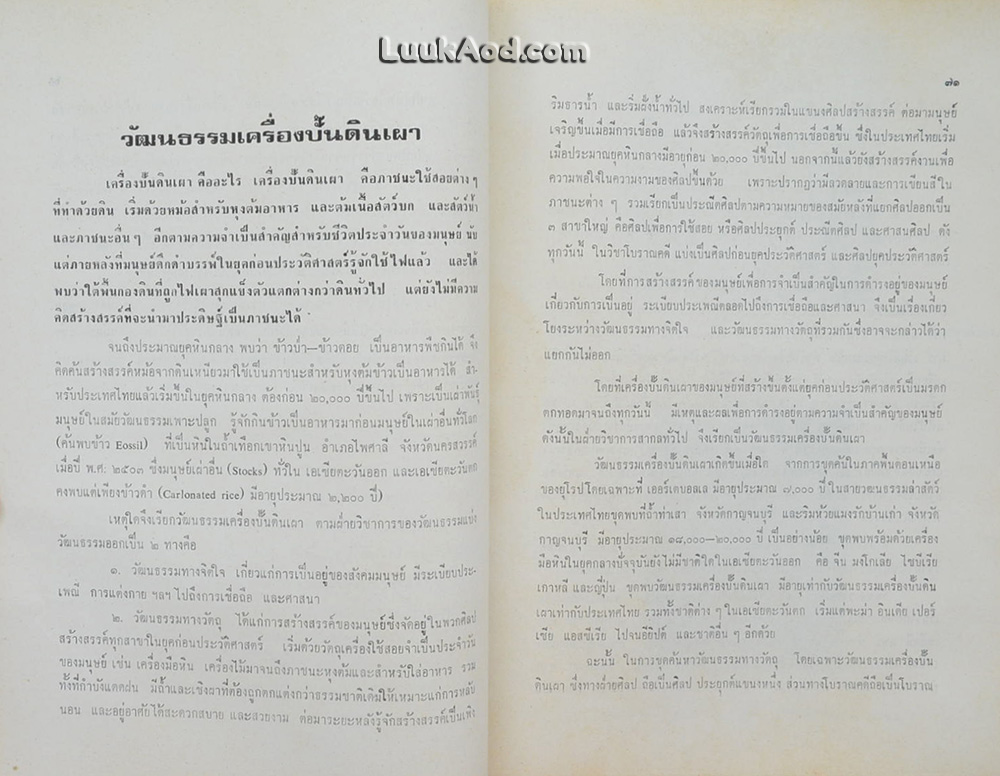 LuukAod.com
วัฒนธรรมเครื่องปั้นดินเผา
เครื่องปั้นดินเผา คืออะไร เครื่องปั้นดินเผา คือภาชนะใช้สอยต่าง ๆ
ที่ทำด้วยดิน เริ่มด้วยหม้อสำหรับหุงต้มอาหาร และต้มเนื้อสัตว์บก และสัตว์น้ำ
และภาชนะอื่น ๆ อีกตามความจำเป็นสำคัญสำหรับชีวิตประจำวันของมนุษย์ นับ
แต่ภายหลังที่มนุษย์ดึกดำบรรพ์ในยุคก่อนประวัติศาสตร์รู้จักใช้ไฟแล้ว และได้
พบว่าใต้พื้นกองดินที่ถูกไฟเผาสุกแข็งตัวแตกต่างกว่าดินทั่วไป แต่ยังไม่มีความ
คิดสร้างสรรค์ที่จะนำมาประดิษฐ์เป็นภาชนะได้
จนถึงประมาณยุคหินกลาง พบว่า ข้าวป่า—ข้าวดอย เป็นอาหารพืชกินได้ จึง
คิดค้นสร้างสรรค์หม้อจากดินเหนียวมาใช้เป็นภาชนะสำหรับหุงต้มข้าวเป็นอาหารได้ สำ-
หรับประเทศไทยแล้วเริ่มขึ้นในยุคหินกลาง ต้องก่อน ๒๐,๐๐๐ ปีขึ้นไป เพราะเป็นเผ่าพันธุ์
มนุษย์ในสมัยวัฒนธรรมเพาะปลูก รู้จักกินข้าวเป็นอาหารมาก่อนมนุษย์ในเผ่าอื่นทั่วโลก
(ค้นพบข้าว Eossil) ที่เป็นหินในถ้ำเทือกเขาหินปูน อำเภอไพศาลี จังหวัดนครสวรรค์
เมื่อปี พ.ศ. ๒๕๐๓ ซึ่งมนุษย์เผ่าอื่น (Stocks) ทั่วใน เอเซียตะวันออก และเอเซียตะวันตก
คงพบแต่เพียงข้าวดำ (Carlonated rice) มีอายุประมาณ ๒,๒๐๐ ปี)
เหตุใดจึงเรียกวัฒนธรรมเครื่องปั้นดินเผา ตามฝ่ายวิชาการของวัฒนธรรมแบ่ง
วัฒนธรรมออกเป็น ๒ ทางคือ
๑. วัฒนธรรมทางจิตใจ เกี่ยวแก่การเป็นอยู่ของสังคมมนุษย์ มีระเบียบประ-
เพณี การแต่งกาย ฯลฯ ไปถึงการเชื่อถือ และศาสนา
๒. วัฒนธรรมทางวัตถุ ได้แก่การสร้างสรรค์ของมนุษย์ซึ่งจัดอยู่ในพวกศิลป
สร้างสรรค์ทุกสาขาในยุคก่อนประวัติศาสตร์ เริ่มด้วยวัตถุเครื่องใช้สอยจำเป็นประจำวัน
ของมนุษย์ เช่น เครื่องมือหิน เครื่องไม้มาจนถึงภาชนะหุงต้มและสำหรับใส่อาหาร รวม
ทั้งที่กำบังแดดฝน มีถ้ำและเชิงผาที่ต้องถูกตกแต่งกว่าธรรมชาติเดิมให้เหมาะแก่การหลับ
นอน และอยู่อาศัยได้สะดวกสบาย และสวยงาม ต่อมาระยะหลังรู้จักสร้างสรรค์เป็นเพิง
๗๑
ริมธารน้ำ และริมฝั่งน้ำทั่วไป สงเคราะห์เรียกรวมในแขนงศิลปสร้างสรรค์ ต่อมามนุษย์
เจริญขึ้นเมื่อมีการเชื่อถือ แล้วจึงสร้างสรรค์วัตถุเพื่อการเชื่อถือขึ้น ซึ่งในประเทศไทยเริ่ม
เมื่อประมาณยุคหินกลางมีอายุก่อน ๒๐,๐๐๐ ปีขึ้นไป นอกจากนี้แล้วยังสร้างสรรค์งานเพื่อ
ความพอใจในความงามของศิลปขึ้นด้วย เพราะปรากฏว่ามีลวดลายและการเขียนสีใน
ภาชนะต่าง ๆ รวมเรียกเป็นประณีตศิลปตามความหมายของสมัยหลังที่แยกศิลปออกเป็น
๓ สาขาใหญ่ คือศิลปเพื่อการใช้สอย หรือศิลปประยุกต์ ประณีตศิลป และศาสนศิลป ดัง
ทุกวันนี้ ในวิชาโบราณคดี แบ่งเป็นศิลปก่อนยุคประวัติศาสตร์ และศิลปยุคประวัติศาสตร์
โดยที่การสร้างสรรค์ของมนุษย์เพื่อการจำเป็นสำคัญในการดำรงอยู่ของมนุษย์
เกี่ยวกับการเป็นอยู่ ระเบียบประเพณีตลอดไปถึงการเชื่อถือและศาสนา จึงเป็นเรื่องเกี่ยว
โยงระหว่างวัฒนธรรมทางจิตใจ และวัฒนธรรมทางวัตถุที่รวมกันซึ่งอาจจะกล่าวได้ว่า
แยกกันไม่ออก
โดยที่เครื่องปั้นดินเผาของมนุษย์ที่สร้างขึ้นตั้งแต่ยุคก่อนประวัติศาสตร์เป็นมรดก
ตกทอดมาจนถึงทุกวันนี้ มีเหตุและผลเพื่อการดำรงอยู่ตามความจำเป็นสำคัญของมนุษย์
ดังนั้นในฝ่ายวิชาการสากลทั่วไป จึงเรียกเป็นวัฒนธรรมเครื่องปั้นดินเผา
วัฒนธรรมเครื่องปั้นดินเผาเกิดขึ้นเมื่อใด จากการขุดค้นในภาคพื้นตอนเหนือ
ของยุโรปโดยเฉพาะที่ เออร์เตบอลเล มีอายุประมาณ ๗,๐๐๐ ปี ในสายวัฒนธรรมล่าสัตว์
ในประเทศไทยขุดพบที่ถ้ำท่าเสา จังหวัดกาญจนบุรี และริมห้วยแมงรักบ้านเก่า จังหวัด
กาญจนบุรี มีอายุประมาณ ๑๘,๐๐๐—๒๐,๐๐๐ ปี เป็นอย่างน้อย ขุดพบพร้อมด้วยเครื่อง
มือหินในยุคกลางปัจจุบันยังไม่มีชาติใดในเอเซียตะวันออก คือ จีน มงโกเลีย ไซบีเรีย
เกาหลี และญี่ปุ่น ขุดพบวัฒนธรรมเครื่องปั้นดินเผา มีอายุเท่ากับวัฒนธรรมเครื่องปั้นดิน
เผาเท่ากับประเทศไทย รวมทั้งชาติต่าง ๆ ในเอเซียตะวันตก เริ่มแต่พะม่า อินเดีย เปอร์
เซีย แอสซีเรีย ไปจนอียิปต์ และชาติอื่น ๆ อีกด้วย
ฉะนั้น ในการขุดค้นหาวัฒนธรรมทางวัตถุ โดยเฉพาะวัฒนธรรมเครื่องปั้น
ดินเผา ซึ่งทางฝ่ายศิลป ถือเป็นศิลป ประยุกต์แขนงหนึ่ง ส่วนทางโบราณคดีถือเป็นโบราณ-